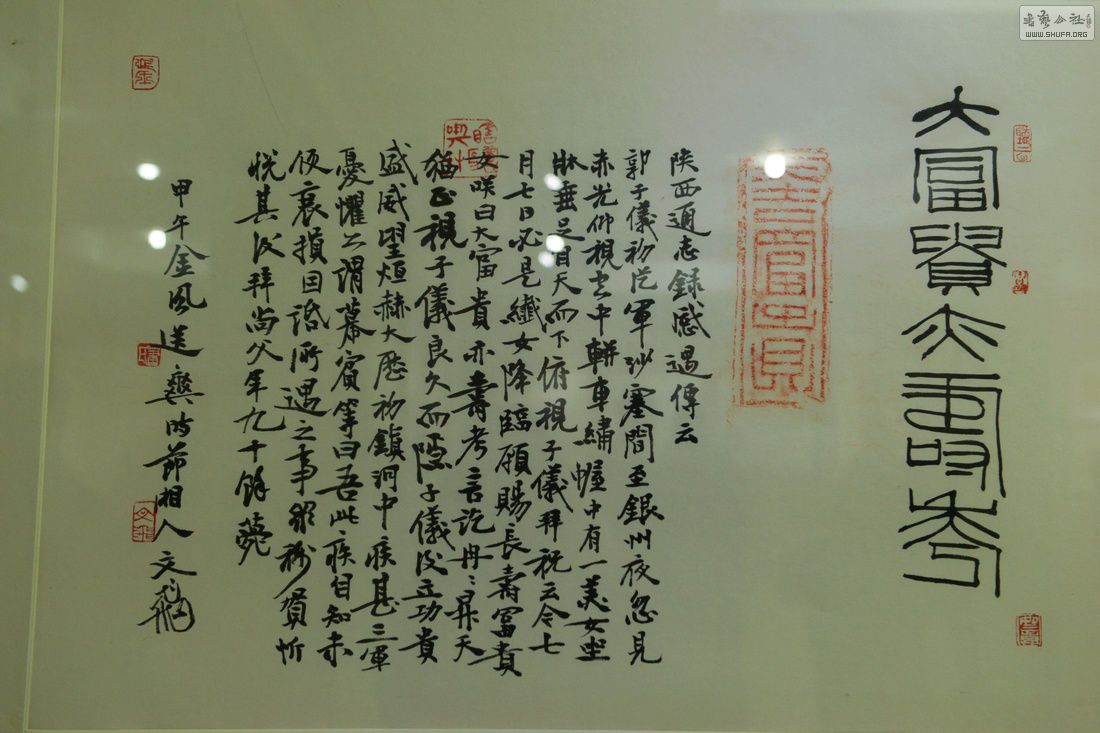 大富貴亦壽考
陝西通志錄感遇傳云
郭子儀初從軍沙塞間至銀州夜忽見
赤光仰視空中軿車繡幄中有一美女坐
牀垂足自天而下俯視子儀拜祝云今七
月七日必是織女降臨願賜長壽富貴
女咲曰大富貴亦壽考言訖冉〻昇天
猶正視子儀良久而隱子儀後立功貴
盛威望烜赫大曆初鎮河中疾甚三軍
憂懼公謂幕賓等曰吾此疾自知未
便衰損因話所遇之事眾稱賀忻
悅其後拜尚父年九十餘薨
甲午金風送爽時節相人文飛
書藝公社
WWW.SHUFA.ORG